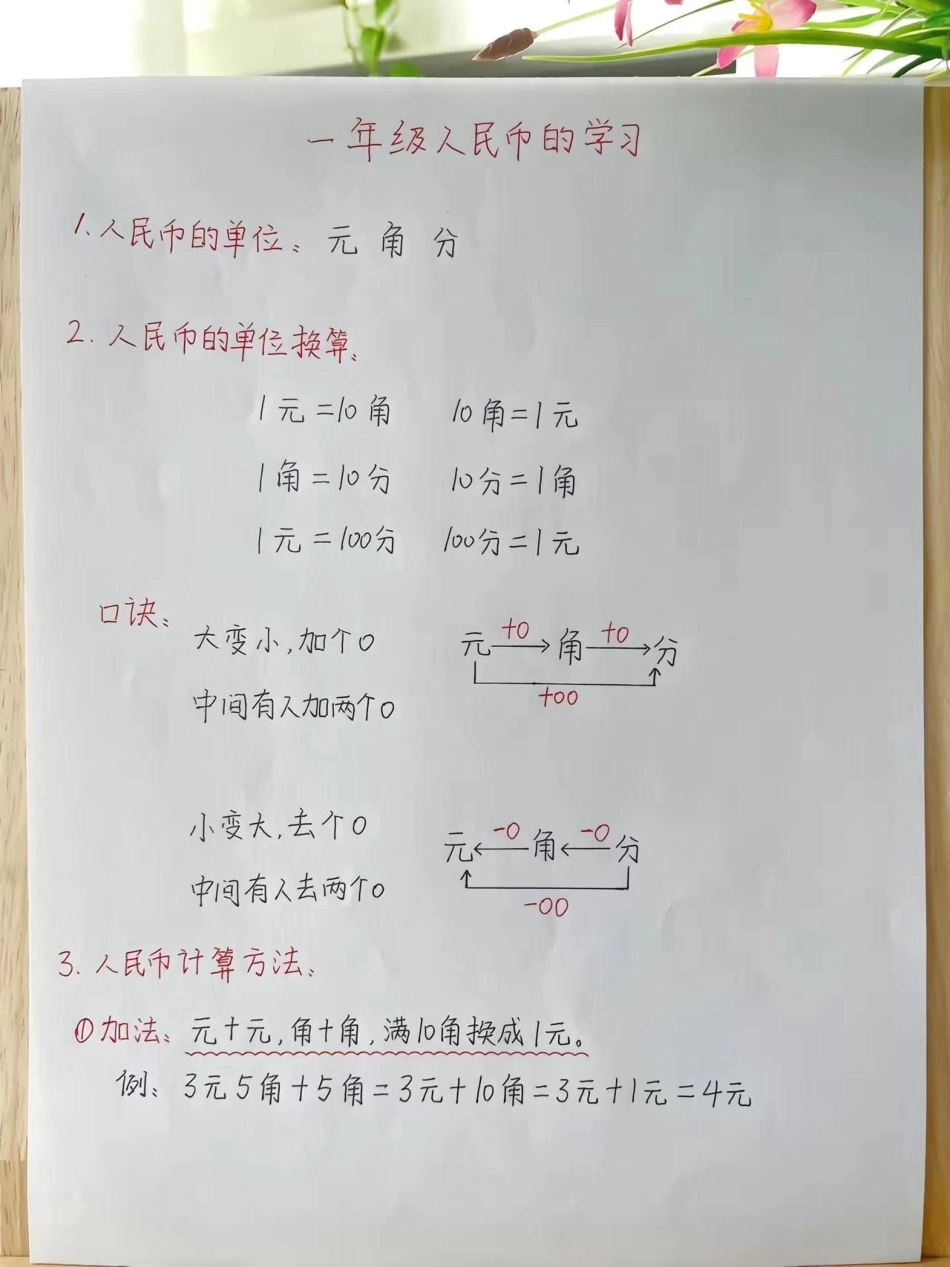 一年级人民币的学习
1.人民币的单位：元 角 分
2.人民币的单位换算：
1元=10角 10角=1元
1角=10分 10分=1角
1元=100分 100分=1元
口诀：
大变小,加个0
中间有人加两个0
元 +0 角 +0 分
+00
小变大,去个0
中间有人去两个0
元 -0 角 -0 分
-00
3.人民币计算方法：
①加法：元+元,角+角,满10角换成1元。
例：3元5角+5角=3元+10角=3元+1元=4元